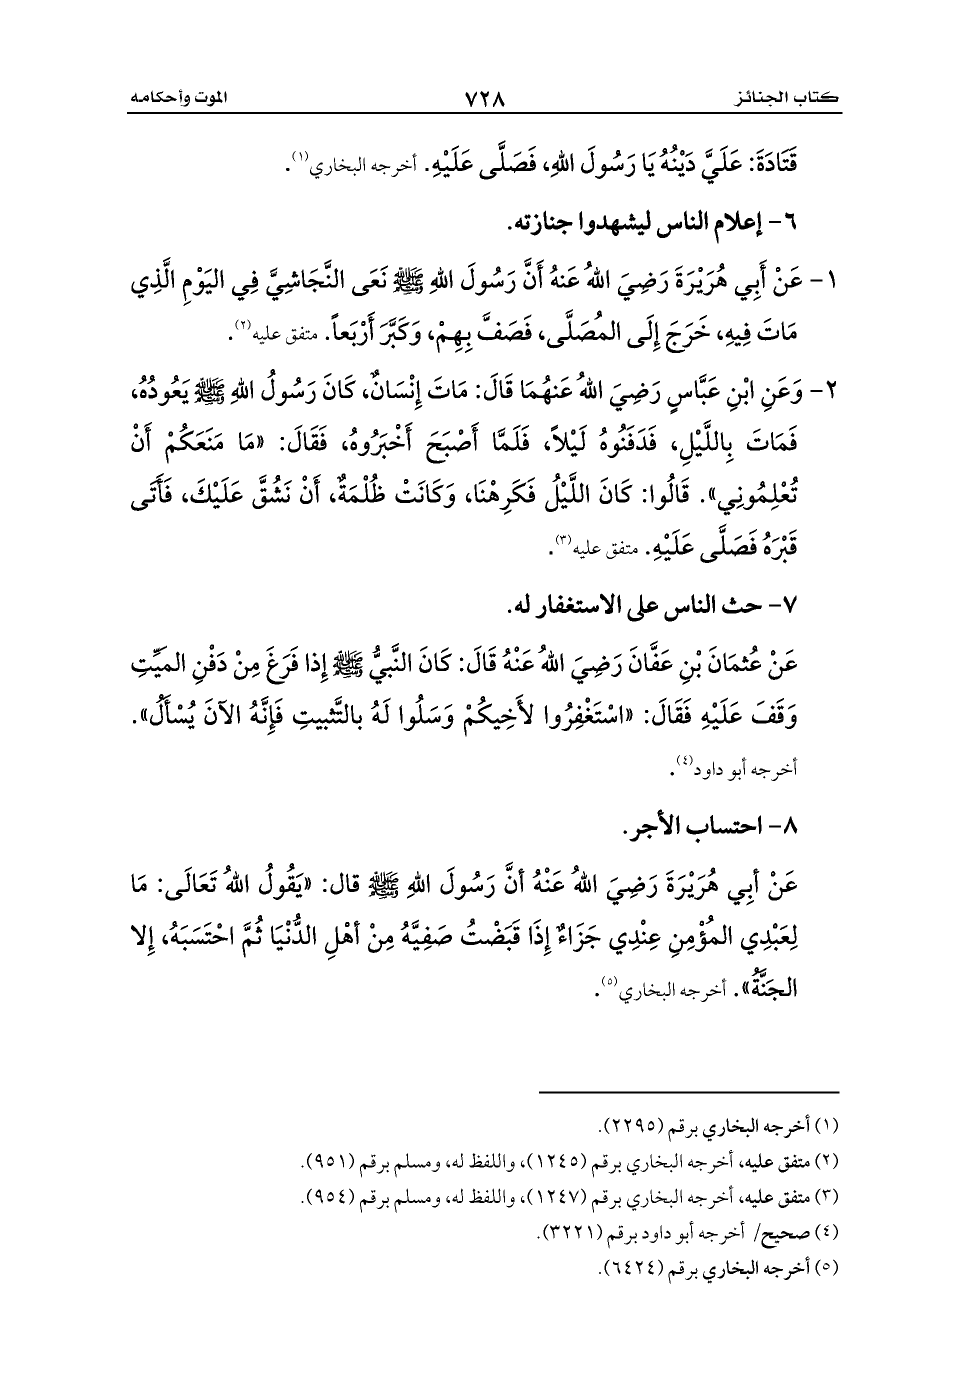 كتاب الجنائز ٧٢٨ الموت وأحكامه
قَتَادَةَ: عَلَيَّ دَيْنُهُ يَا رَسُولَ اللهِ، فَصَلَّى عَلَيْهِ. أخرجه البخاري(١).
٦- إعلام الناس ليشهدوا جنازته.
١- عَنْ أَبِي هُرَيْرَةَ رَضِيَ اللهُ عَنهُ أَنَّ رَسُولَ اللهِ ﷺ نَعَى النَّجَاشِيَّ فِي اليَوْمِ الَّذِي
مَاتَ فِيهِ، خَرَجَ إِلَى المُصَلَّى، فَصَفَّ بِهِمْ، وَكَبَّرَ أَرْبَعاً. متفق عليه(٢).
٢- وَعَنِ ابْنِ عَبَّاسٍ رَضِيَ اللهُ عَنهُمَا قَالَ: مَاتَ إِنْسَانٌ، كَانَ رَسُولُ اللهِ ﷺ يَعُودُهُ،
فَمَاتَ بِاللَّيْلِ، فَدَفَنُوهُ لَيْلاً، فَلَمَّا أَصْبَحَ أَخْبَرُوهُ، فَقَالَ: «مَا مَنَعَكُمْ أَنْ
تُعْلِمُونِي». قَالُوا: كَانَ اللَّيْلُ فَكَرِهْنَا، وَكَانَتْ ظُلْمَةٌ، أَنْ نَشُقَّ عَلَيْكَ، فَأَتَى
قَبْرَهُ فَصَلَّى عَلَيْهِ. متفق عليه(٣).
٧- حث الناس على الاستغفار له.
عَنْ عُثمَانَ بْنِ عَفَّانَ رَضِيَ اللهُ عَنْهُ قَالَ: كَانَ النَّبيُّ ﷺ إِذا فَرَغَ مِنْ دَفْنِ المَيِّتِ
وَقَفَ عَلَيْهِ فَقَالَ: «اسْتَغْفِرُوا لأَخِيكُمْ وَسَلُوا لَهُ بالتَّثبيتِ فَإِنَّهُ الآنَ يُسْأَلُ».
أخرجه أبو داود(٤).
٨- احتساب الأجر.
عَنْ أبِي هُرَيْرَةَ رَضِيَ اللهُ عَنْهُ أنَّ رَسُولَ اللهِ ﷺ قال: «يَقُولُ اللهُ تَعَالَى: مَا
لِعَبْدِي المُؤْمِنِ عِنْدِي جَزَاءٌ إِذَا قَبَضْتُ صَفِيَّهُ مِنْ أهْلِ الدُّنْيَا ثُمَّ احْتَسَبَهُ، إِلا
الجَنَّةُ». أخرجه البخاري(٥).
(١) أخرجه البخاري برقم (٢٢٩٥).
(٢) متفق عليه، أخرجه البخاري برقم (١٢٤٥)، واللفظ له، ومسلم برقم (٩٥١).
(٣) متفق عليه، أخرجه البخاري برقم (١٢٤٧)، واللفظ له، ومسلم برقم (٩٥٤).
(٤) صحيح/ أخرجه أبو داود برقم (٣٢٢١).
(٥) أخرجه البخاري برقم (٦٤٢٤).